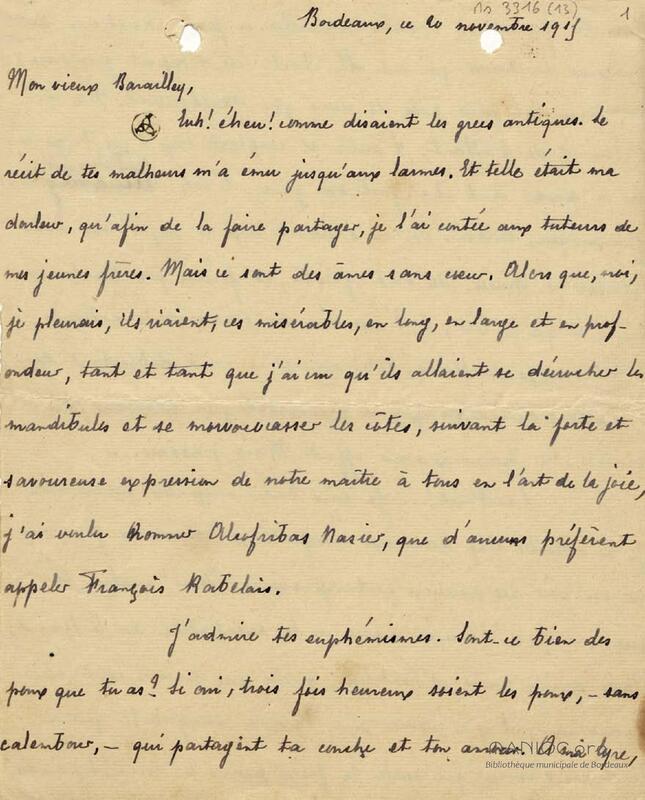 Ms 3316 (13)
1
Bordeaux, ce 20 novembre 1915
Mon vieux Barailley,
Euh! éheu! comme disaient les grecs antiques. Le
récit de tes malheurs m'a ému jusqu'aux larmes. Et telle était ma
douleur, qu'afin de la faire partager, je l'ai contée aux tuteurs de
mes jeunes frères. Mais ce sont des âmes sans cœur. Alors que, moi,
je pleurais, ils riaient, ces misérables, en long, en large et en prof-
ondeur, tant et tant que j'ai cru qu'ils allaient se décrocher les
mandibules et se les côtes, suivant la forte et
savoureuse expression de notre maître à tous en l'art de la joie,
j'ai voulu nommer Alcofribas Nasier, que d'aucuns préfèrent
appeler François Rabelais.
J'admire tes euphémismes. Sont-ce bien des
poux que tu as? Si oui, trois fois heureux soient les poux, - sans
calembour, - qui partagent ta couche et ton amour. Ô ma lyre,
MANIOC.org
Bibliothèque municipale de Bordeaux